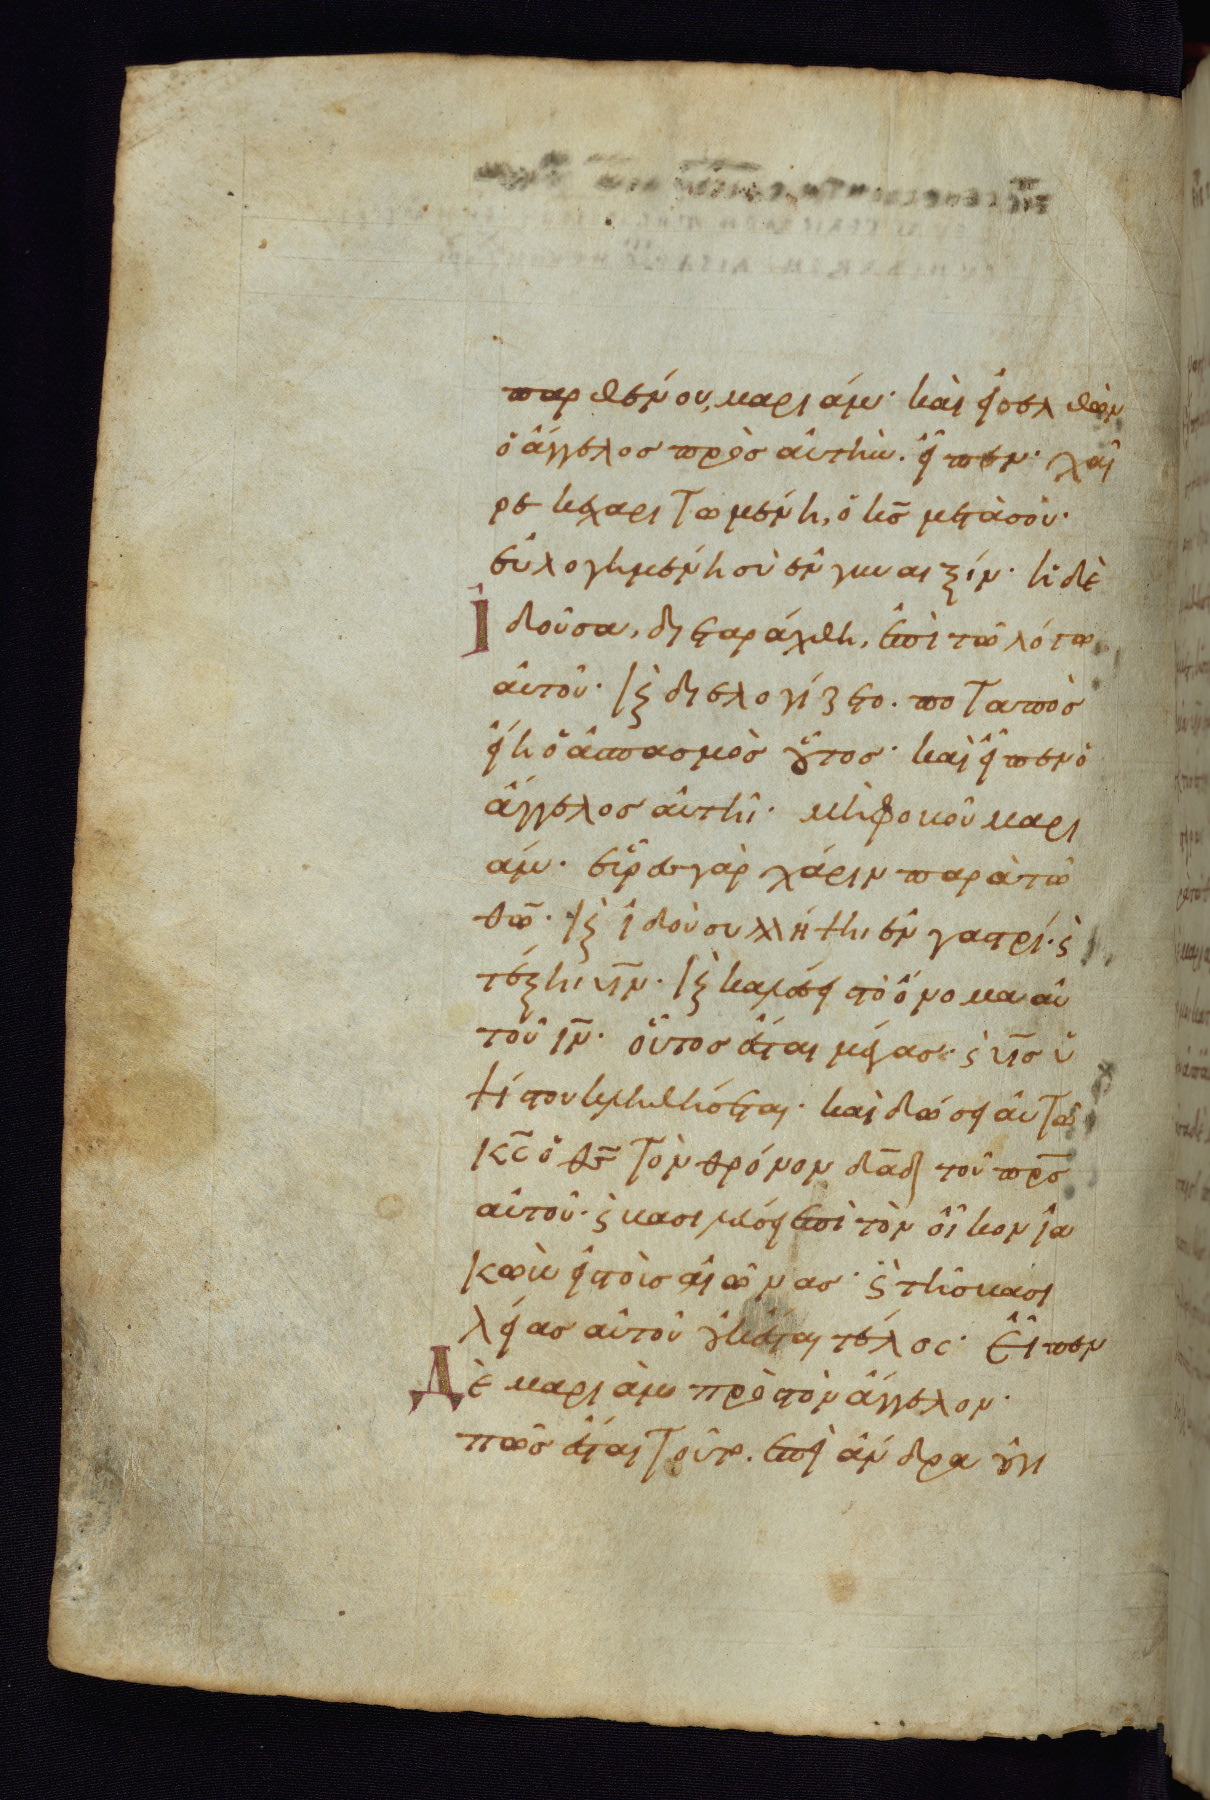 παρθένου, μαριάμ· καὶ εἰσελθὼν
ὁ ἄγγελος πρὸς αὐτὴν. εἶπεν· χαῖ
ρε κεχαριτωμένη, ὁ κ̅ς̅ μετὰ σοῦ·
εὐλογημένη σὺ ἐν γυναιξίν· ἡ δὲ
ἰδοῦσα, διεταράχθη, ἐπὶ τῶ λόγω
αὐτοῦ· κ(αὶ) διελογίζετο. ποταπὸς
εἴη ὁ ἀσπασμὸς οὗτος· καὶ εἶπεν ὁ
ἄγγελος αὐτῆ· μὴ φοβοῦ μαρι
άμ· εὗρες γὰρ χάριν παρὰ τῶ
θ̅ω̅· κ(αὶ) ἰδοὺ συλλήψη ἐν γαστρί· κ(αὶ)
τέξη υ̅ν̅· κ(αὶ) καλέσεις τὸ ὄνομα αὐ
τοῦ ι̅ν̅· οὗτος ἔσται μέγας· κ(αὶ) υ̅ς̅ ὑ
ψίστου κληθήσεται· καὶ δώσει αὐτῶ
κ̅ς̅ ὁ θ̅ς̅ τὸν θρόνον δ̅α̅δ̅ τοῦ π̅ρ̅ς̅
αὐτοῦ· κ(αὶ) βασιλεύσει ἐπὶ τὸν οἶκον ἰα
κὼβ εἰς τοὺς αἰῶνας· κ(αὶ) τῆς βασι
λείας αὐτοῦ οὐκ ἔσται τέλος· Εἶπεν
Δὲ μαριὰμ πρὸς τὸν ἄγγελον·
πῶς ἔσται τοῦτο. ἐπεὶ ἄνδρα οὐ γι